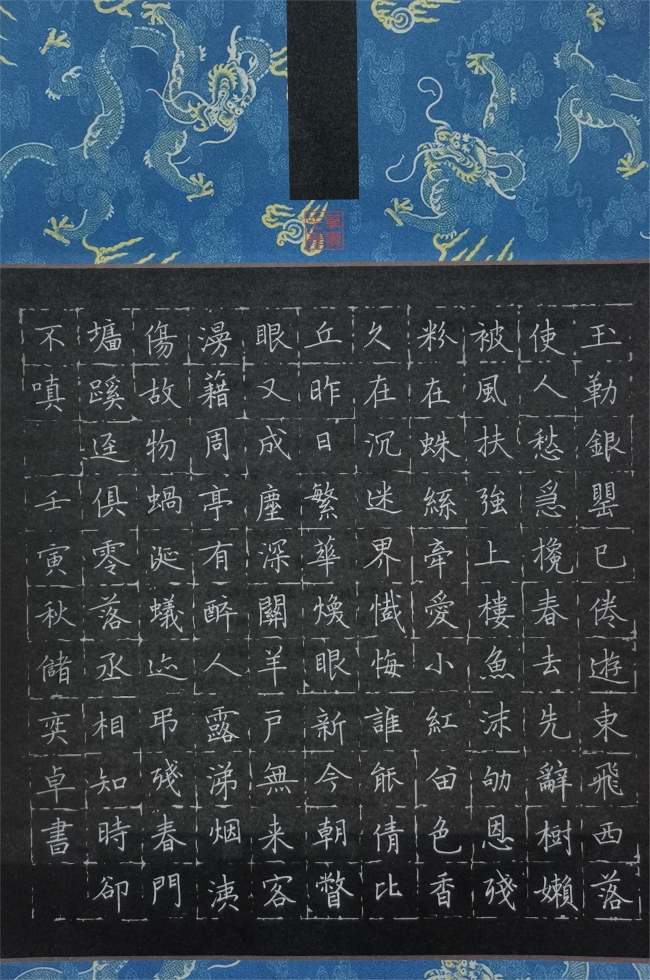 玉勒銀罌已倦遊東飛西落
使人愁急攙春去先辭樹嬾
被風扶強上樓魚沫劬恩殘
粉在蛛絲牽愛小紅留色香
久在沉迷界懺悔誰能倩比
丘昨日繁華煥眼新今朝瞥
眼又成塵深關羊戶無来客
漫藉周亭有醉人露涕烟洟
傷故物蝸涎蟻迹弔殘春門
墻蹊逕俱零落丞相知時卻
不嗔 壬寅秋儲奕卓書